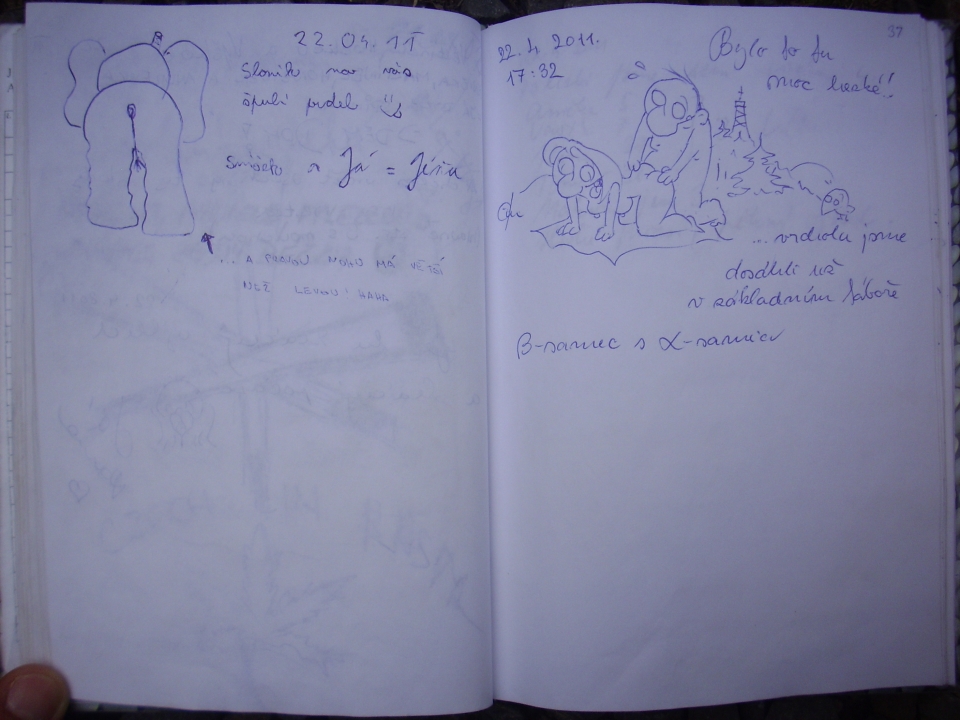 22.04.11
Sloník na vás
špulí prdel
Já = Jéňa
... A PRAVOU NOHU MÁ VĚTŠÍ
NEŽ LEVOU! HAHA
37
22. 4. 2011.
17:32
Bylo to tu
moc hezké!!
... vrcholu jsme
dosáhli už
v základním táboře
β-samec s α-samicí